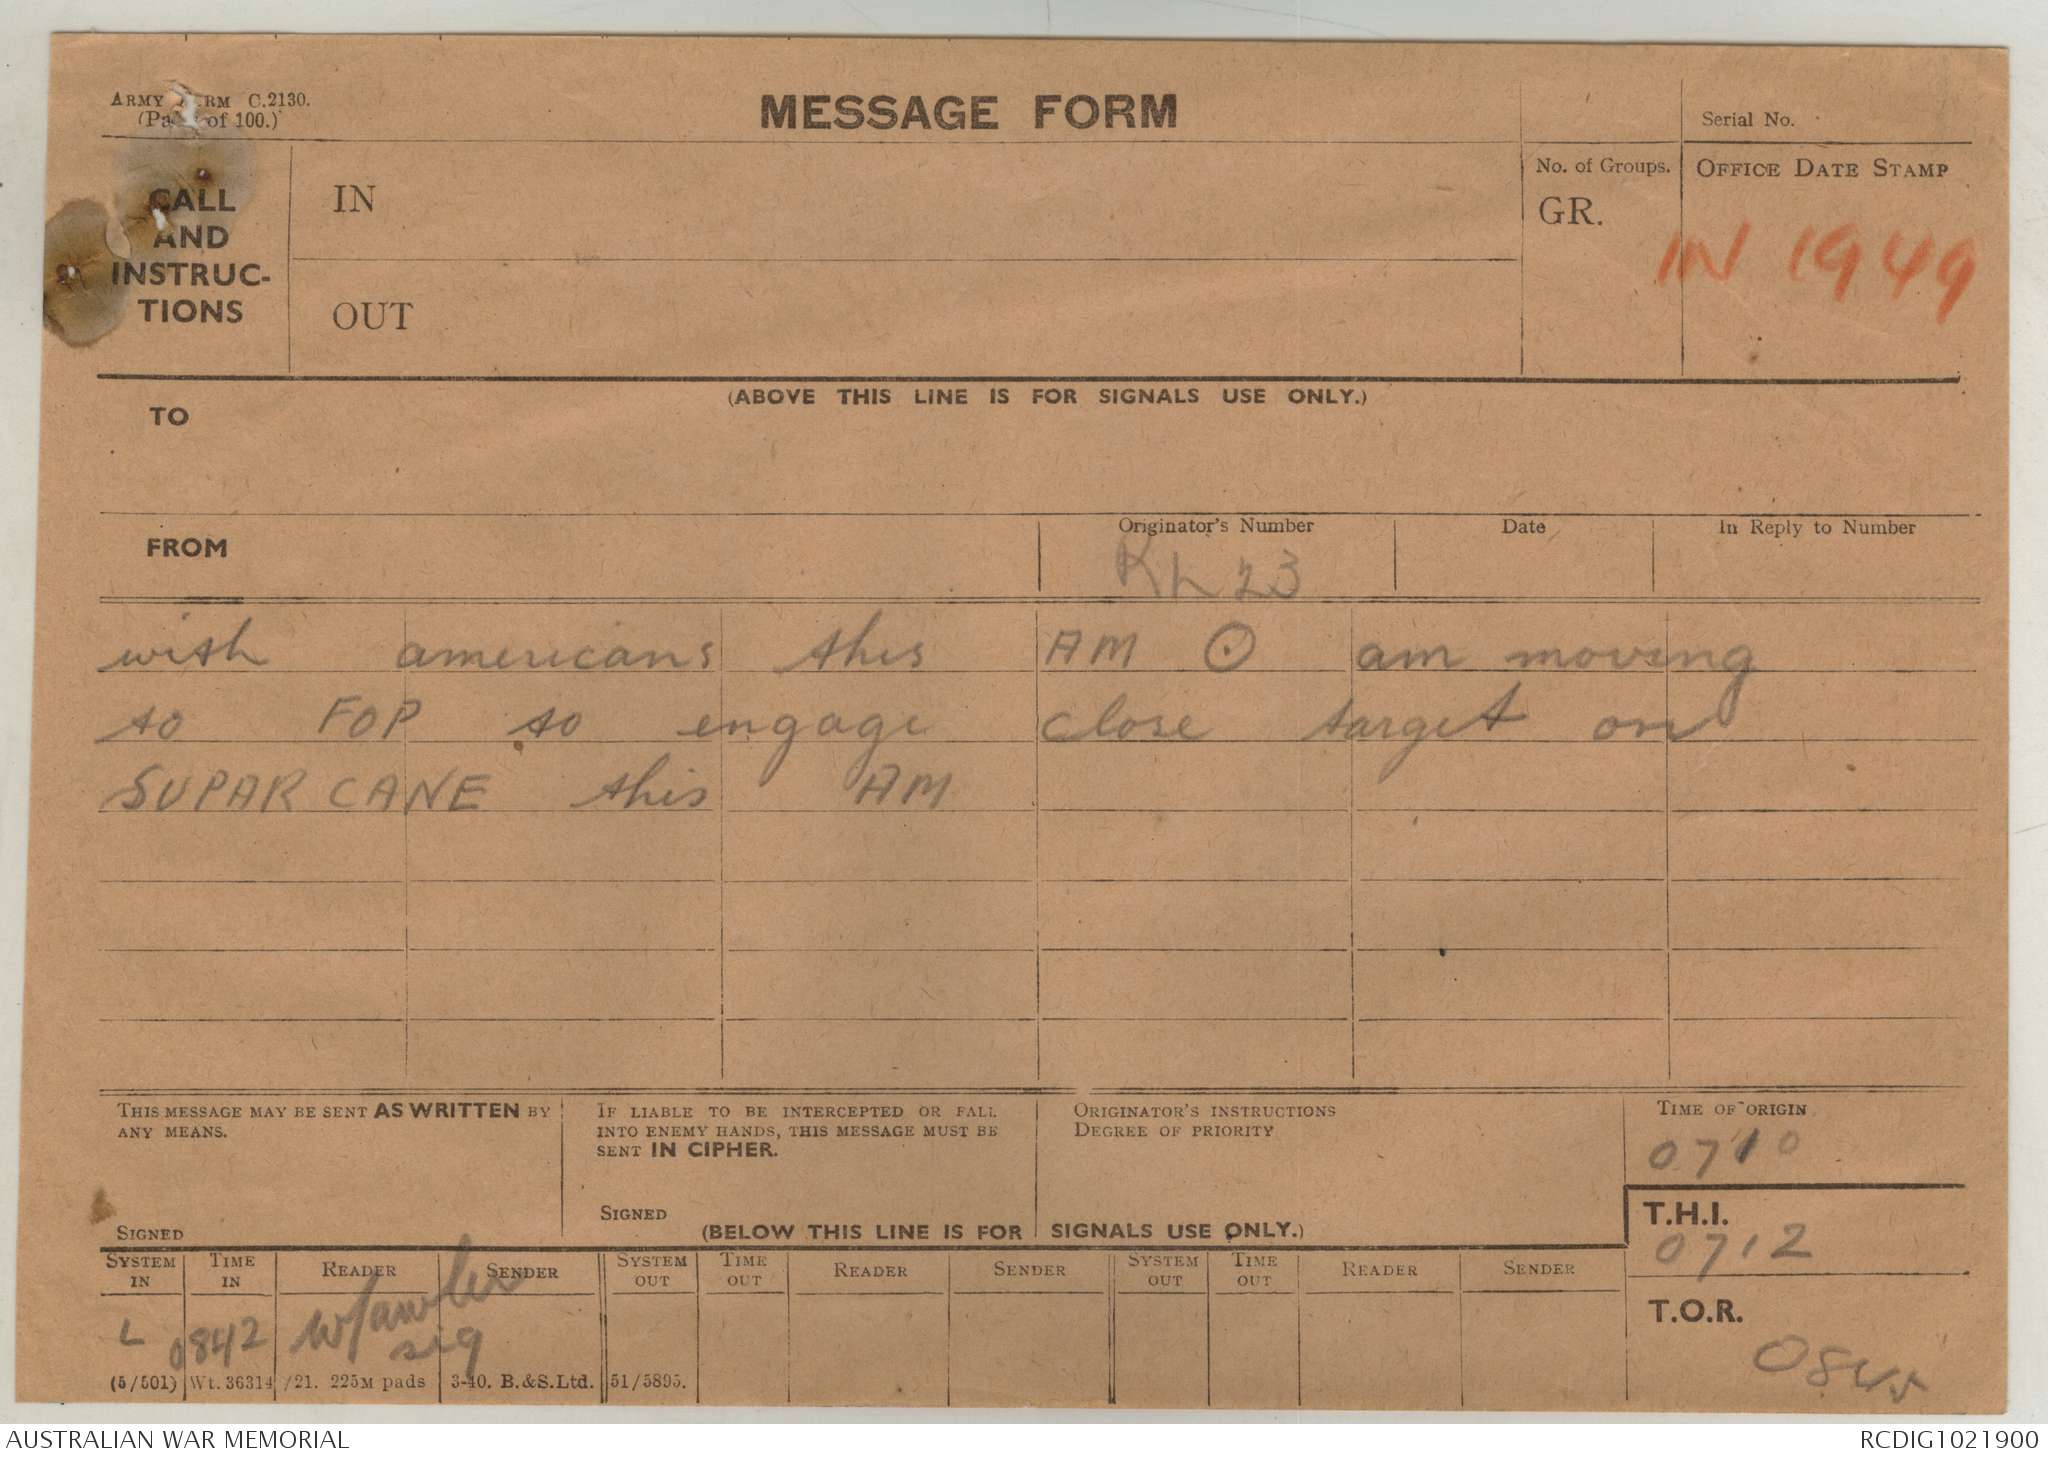 ARMY FORM C.2130.
(Pads of 100.)
MESSAGE FORM
Serial No.
CALL
AND
INSTRUC-
TIONS
IN
OUT
No. of Groups.
GR.
OFFICE DATE STAMP
IN 1949
(ABOVE THIS LINE IS FOR SIGNALS USE ONLY.)
TO
FROM
Originator's Number
KL23
Date
In Reply to Number
with americans this AM ⊙ am moving
to FOP to engage close target on
SUPAR CANE this AM
THIS MESSAGE MAY BE SENT AS WRITTEN BY
ANY MEANS.
SIGNED
IF LIABLE TO BE INTERCEPTED OR FALL
INTO ENEMY HANDS, THIS MESSAGE MUST BE
SENT IN CIPHER.
SIGNED
ORIGINATOR'S INSTRUCTIONS
DEGREE OF PRIORITY
TIME OF ORIGIN
0710
T.H.I.
0712
(BELOW THIS LINE IS FOR SIGNALS USE ONLY.)
SYSTEM IN TIME IN READER SENDER SYSTEM OUT TIME OUT READER SENDER SYSTEM OUT TIME OUT READER SENDER
L 0842 sig
T.O.R.
(5/501) Wt. 36314 /21. 225M pads 3-40. B.&S.Ltd. 51/5895.
AUSTRALIAN WAR MEMORIAL
RCDIG1021900